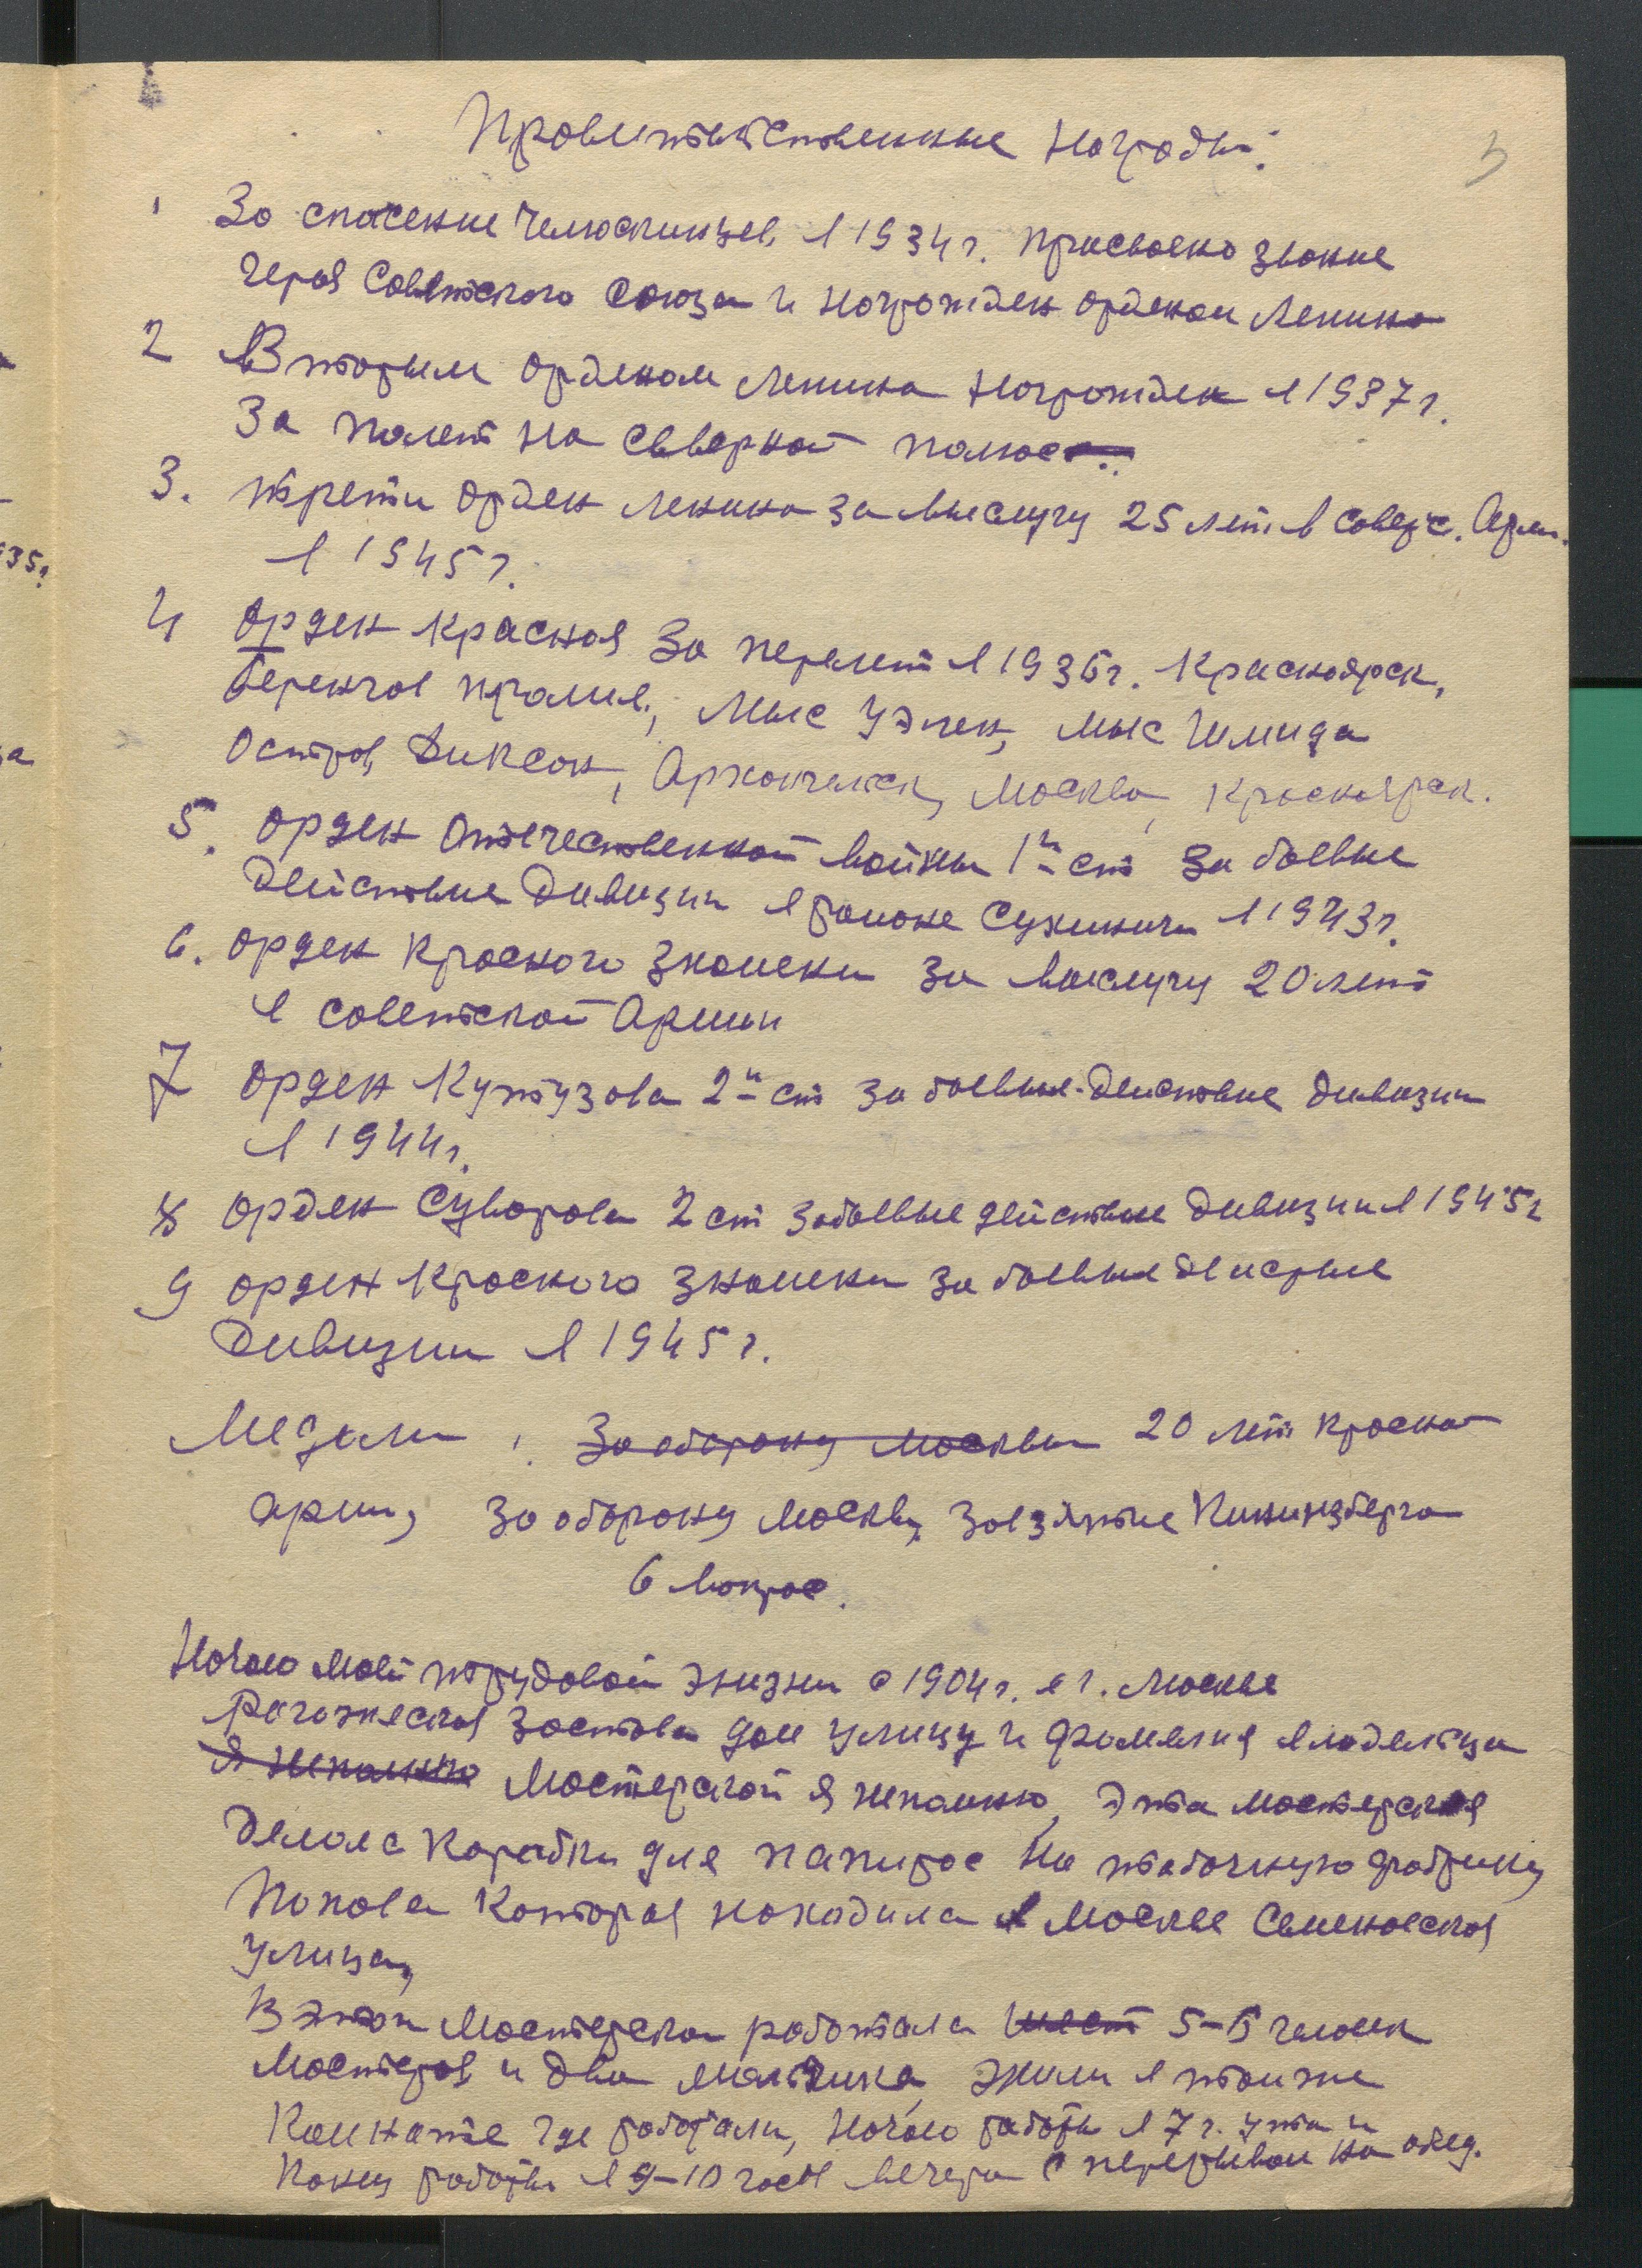 Правительственные награды:
5
1 За спасение Челюскинцев в 1934 г. присвоено звание
Героя Советского Союза и награжден орденом Ленина
2 Вторым орденом Ленина награжден в 1937 г.
За полет на северной полюс
3. трети орден Ленина за выслугу 25 лет в Советс. Арм.
в 1945 г.
4 Орден Красная За перелет в 1936 г. Красноярск,
Беренгов пролив, Мыс Уэлен, мыс Шмида
Остров Диксон, Архангельск, Москва, Красноярск.
5. Орден Отечественной войны 1й ст За боевые
Действие Дивизии в районе Сухиничи в 1943 г.
6. Орден Красного Знамени За выслугу 20 лет
в советской Армии
7 Орден Кутузова 2й ст за боевые действие дивизии
в 1944 г.
8 Орден Суворова 2 ст за боевые действие дивизии в 1945 г
9 орден Красного Знамени за боевые действие
Дивизии в 1945 г.
Медали: За оборону Москвы 20 лет красной
армии, за оборону Москвы, За взятие Кинингзберга
6 вопрос.
Начало моей трудовой жизни с 1904 г. в г. Москве
Рагожеская застава дом улицу и фамелия владельца
Я непомню Мастерской я непомню, Эта мастерская
делала каробки для папирос на табачную фабрику
Попова Которая находила в Москве Семеновская
улица,
В этой Мастерской работала шест 5-6 человек
Мастеров и два мальчика, жили в тойже
Комнате где работали, Начало работы в 7 г. утра и
Конец работы в 9-10 часов вечера с перерывом на обед.
35г.